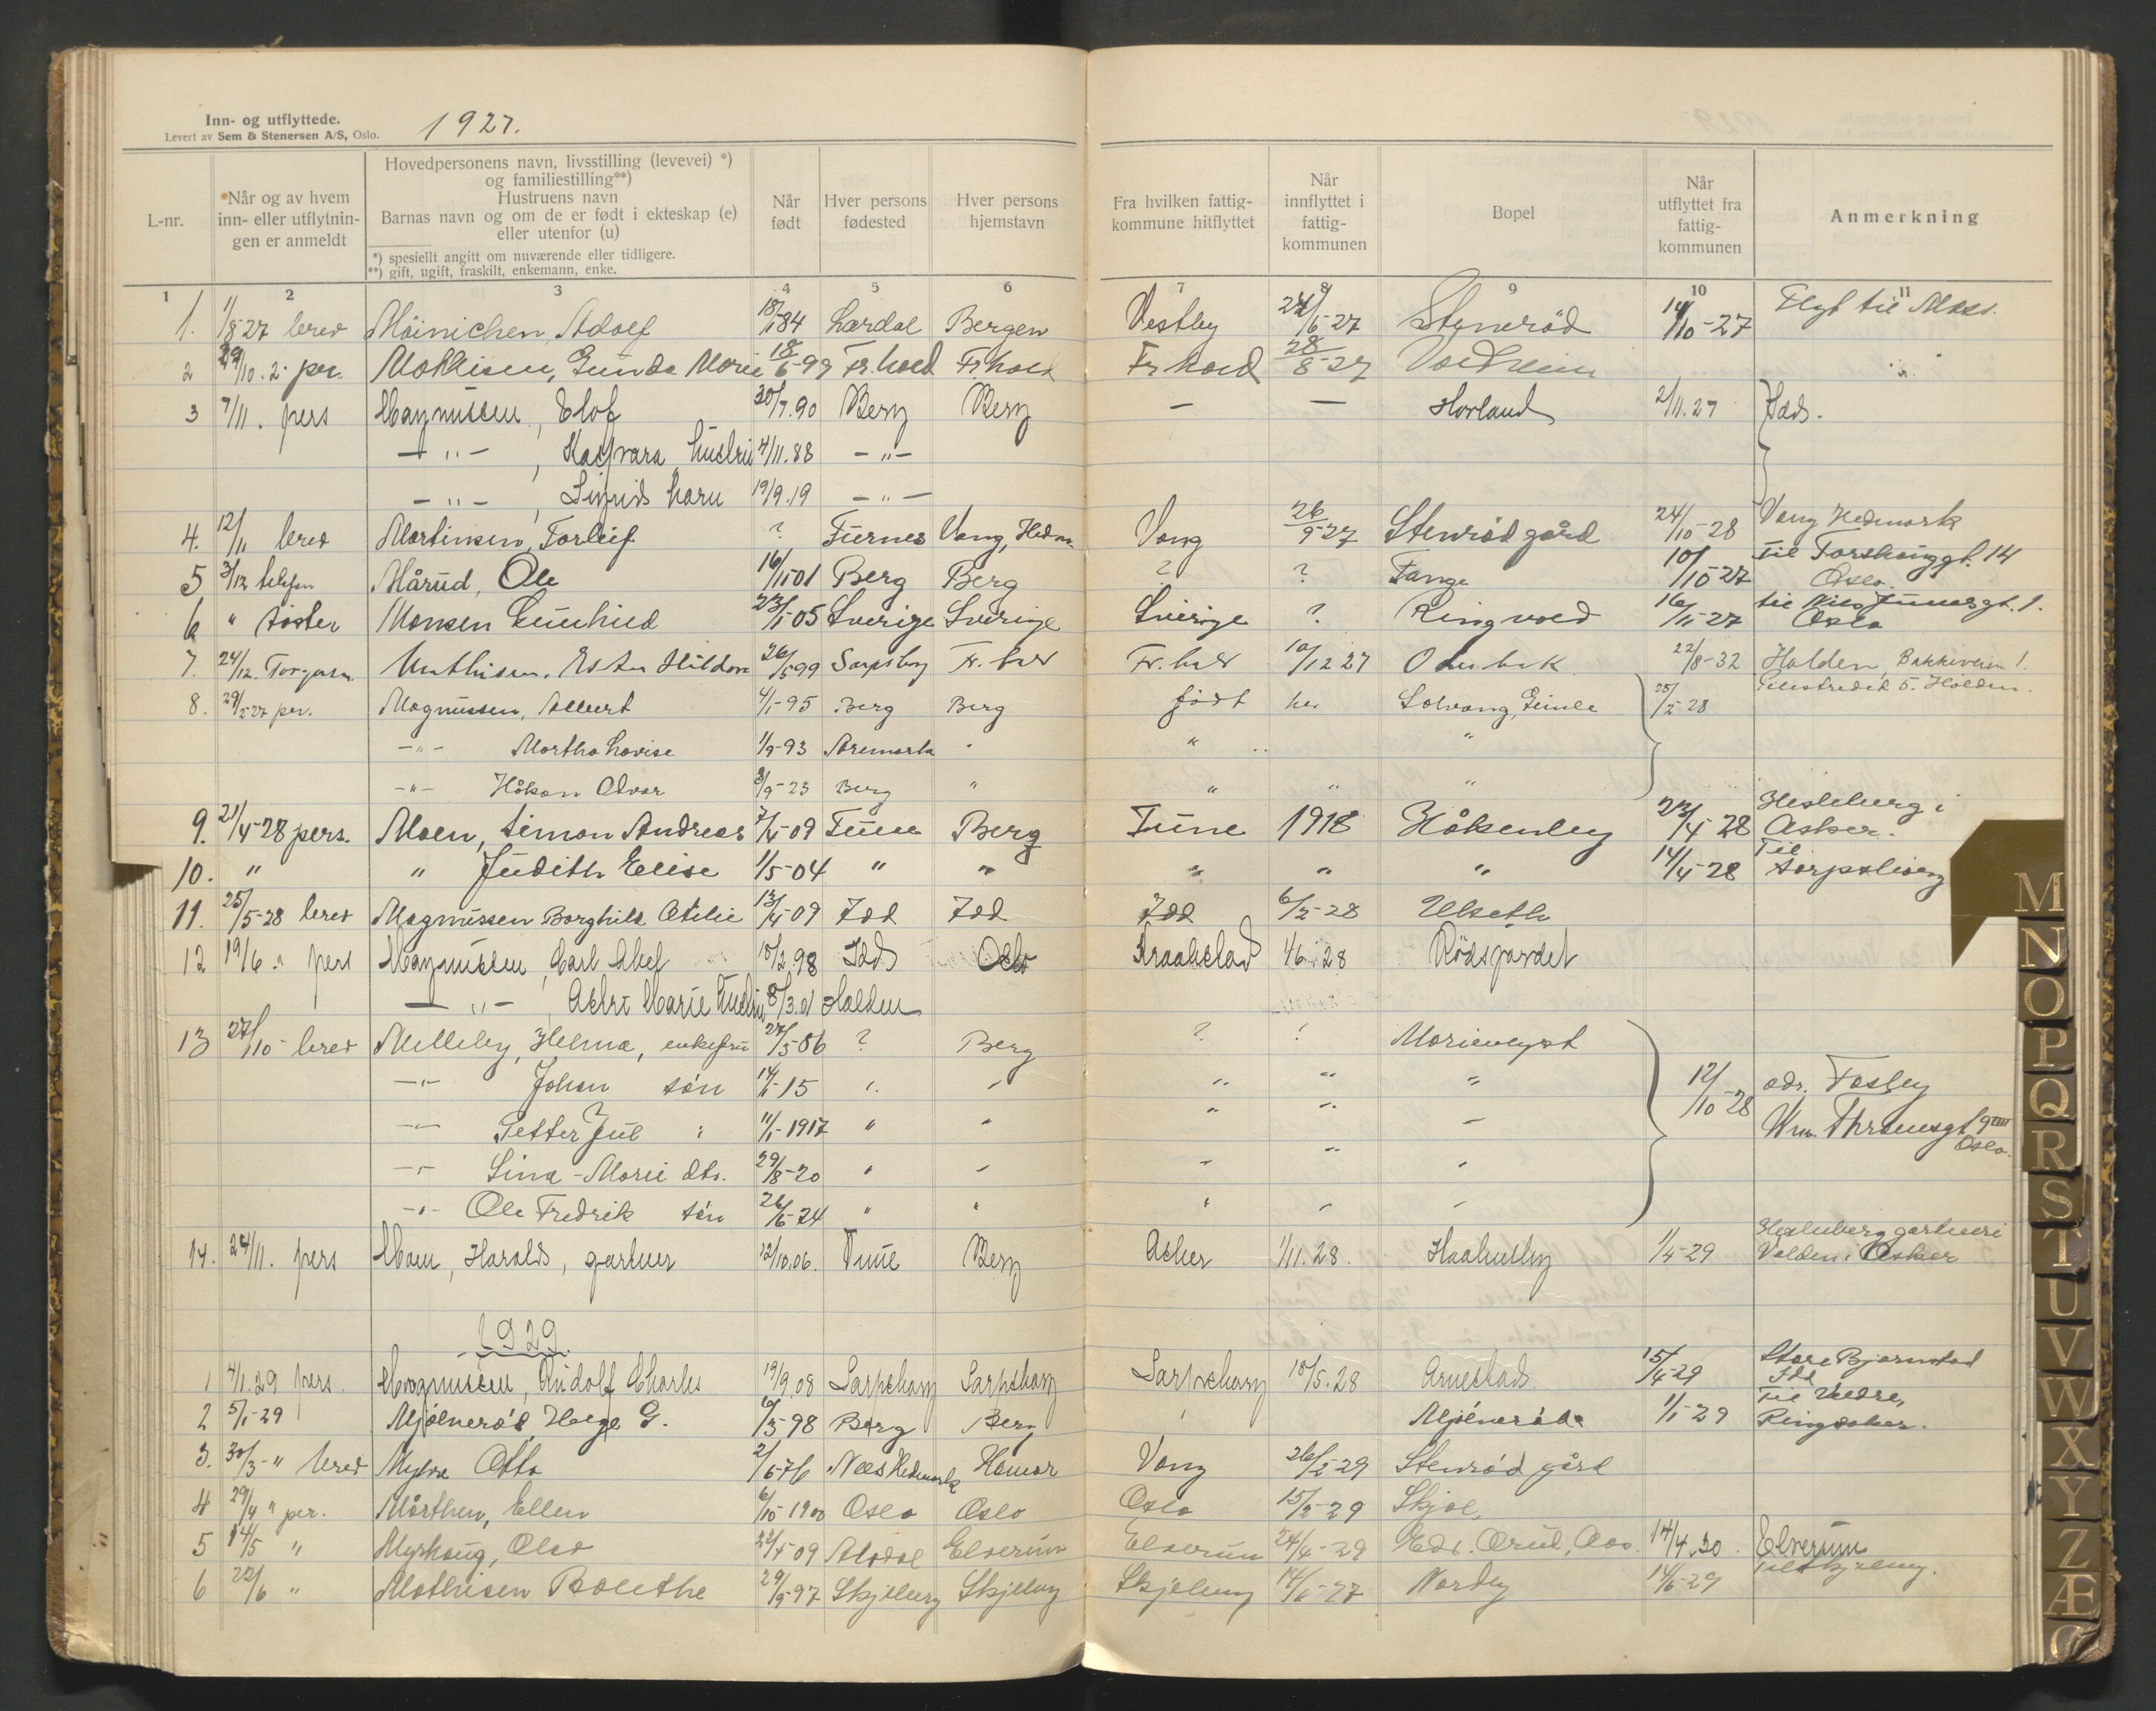 Inn- og utflyttede.
Levert av Sem & Stenersen A/S, Oslo.
1927.
L-nr.
Når og av hvem inn- eller utflytnin- gen er anmeldt
Hovedpersonens navn, livsstilling (levevei) *) og familiestilling**)
Hustruens navn
Barnas navn og om de er født i ekteskap (e) eller utenfor (u)
*) spesiellt angitt om nuværende eller tidligere.
**) gift, ugift, fraskilt, enkemann, enke.
Når født
Hver persons fødested
Hver persons hjemstavn
Fra hvilken fattig- kommune hitflyttet
Når innflyttet i fattig- kommunen
Bopel
Når utflyttet fra fattig- kommunen
Anmerkning
1 2 3 4 5 6 7 8 9 10 11
1. 1/8-27 brev Möinichen, Adolf 18/1-84 Lardal Bergen Vestby 24/6-27 Stenrød 14/10-27 Flyt til Moss.
2 29/10.2- per. Gunda Marie 18/6-99 Fr.hald Fr.hald Fr.hald 28/8-27 Voldheim
3 7/11. pers Magnussen, Elof 30/7.90 Berg Berg — — Horland 2/11.27 Idd.
—„— , hustru 4/11.88 —„—
—„— , Sigrid barn 19/9.19 —„—
4. 12/11 brev Martinsen, Torleif ? Furnes Vang, Hedm. Vang 26/9-27 Stenrød gård 24/10-28 Vang Hedmark
5 3/12 telefon Mårud, Ole 16/11-01 Berg Berg ? ? Tange 10/10-27 til 14 Oslo.
6 " søster Monsen Gunhild 23/1-05 Sverige Sverige Sverige ? Ringvold 16/11-27 til Nils Juuelsgt. 1. Oslo
7. 24/12. Mathisen, Ester Hildora 26/5 99 Sarpsborg Fr.hald Fr.hald 10/12 27 22/8-32 Holden, Bakkeveien 1.
8. 29/2-27 per. Magnussen, Albert 4/1-95 Berg Berg født her Solvang, Gimle 25/2-28 5. Halden.
—„— Martha Lovise 1/9-93 Aremark " " "
—„— Håkon Alvar 8/9-23 Berg " " " "
9. 21/4-28 pers. Moen, Simon Andreas 7/4-09 Tune Berg Tune 1918 Håkenby 23/4 28 Hesleberg i Asker.
10. " " Judith Elise 1/5-04 " " " " " 14/4-28 Til Sarpsborg
11. 25/5-28 brev Magnussen Borghild Otelie 13/4-09 Idd Idd Idd 6/2-28 Ulseth
12 19/6 " pers Magnussen, Carl 18/2.98 Idd Oslo Kraakstad 4/6 28 Rødsgardet
—„— , Marie hustru 8/3.01 Halden
13 27/10- brev Melleby, Helma, enkefru 27/5-86 ? Berg ? ? Marienlyst
—„— Johan søn 14/1-15 " " " " " 12/10-28 adr. Fosby
—„— Petter Juul " 11/1-1917 " " " " — Wm. Thranesgt 9 IIII Oslo.
—„— Lina-Marie dtr. 29/8-20 " " " " "
—„— Ole Fredrik søn 26/6-24 " " " " "
14. 24/11. pers Moen, Harald, gartner 12/10.06. Tune Berg Asker 1/11.28. Haakenby 1/4-29 Hesleberg gartneri Valden i Asker
1929.
1 4/1.29 pers. Magnussen, Rudolf Charles 19/9.08 Sarpsborg Sarpsborg Sarpsborg 18/5.28 Arnestad. 15/4-29 Store Bjørnstad Idd
2 5/1-29 Mjølnerød, Helge G. 6/3-98 Berg Berg Mjølnerød 1/1-29 Til Veldre, Ringsaker.
3. 30/3-" brev Myhre Otto 2/6-76 Næs Hedmark Hamar Vang 26/2-29 Stenrød gård
4 29/4 " per. Mårthen, Ellen 6/10-1900 Oslo Oslo Oslo 15/2-29 Skjol.
5 14/5 " Myrhaug, Olav 22/4-09 Alvdal Elverum Elverum 24/4-29 17/4.30. Elverum
6 22/6 " Mathisen 29/9-97 Skjeberg Skjeberg Skjeberg 14/6-27 Nordby 14/6-29 til Skjeberg.
M
N
O
P
Q
R
S
T
U
V
W
X
Y
Z
Æ